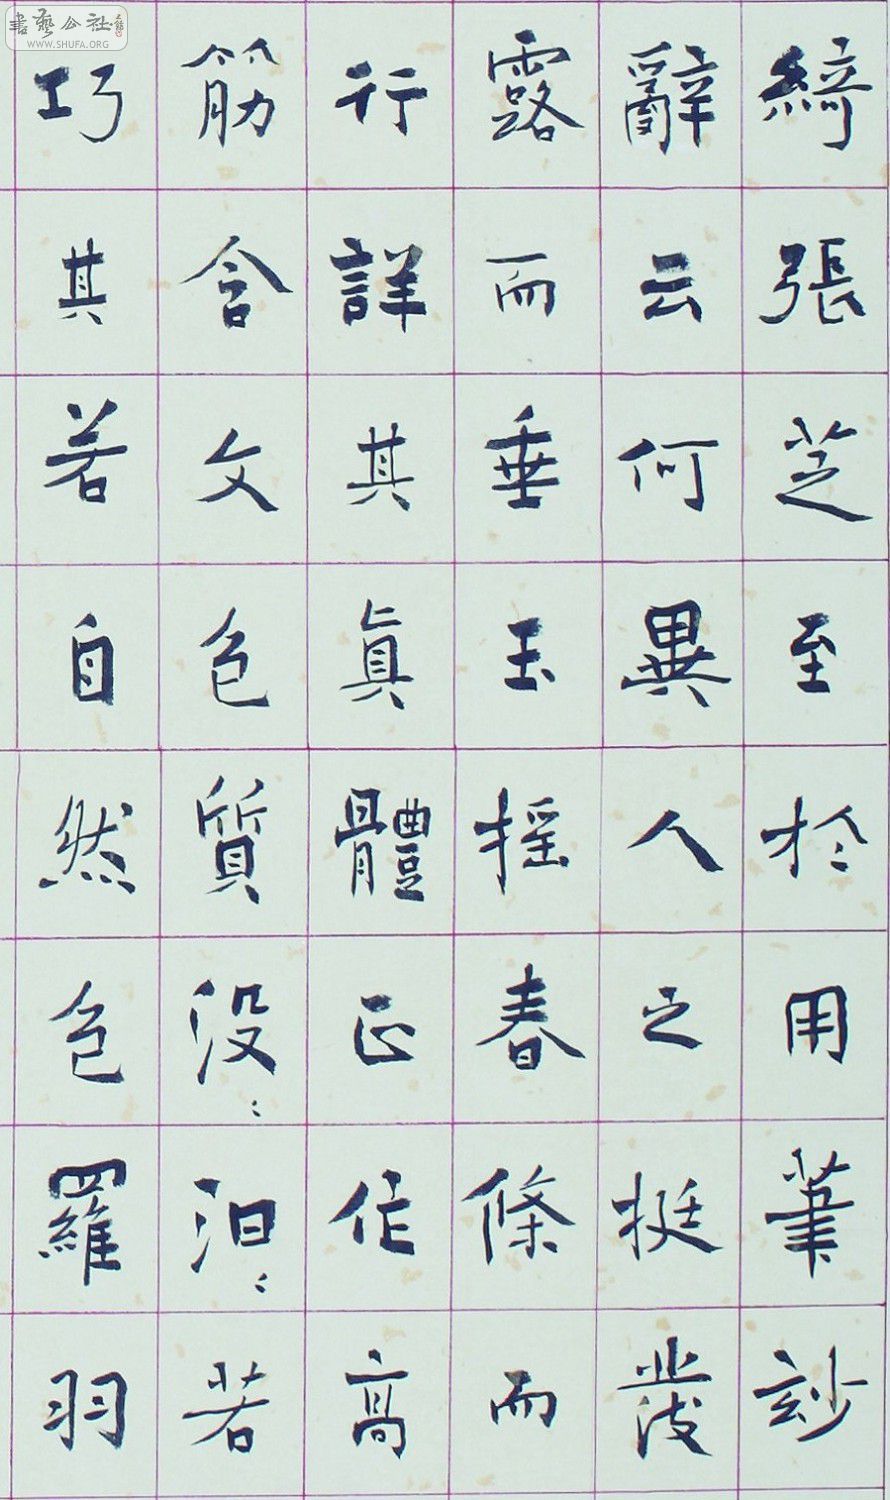 綺張芝至於用筆玅
辭云何異人之挺發
露而垂玉摇春條而
行詳其真體正作高
筋含文色質没〻汨〻若
巧其若自然色羅羽
書藝公社
WWW.SHUFA.ORG